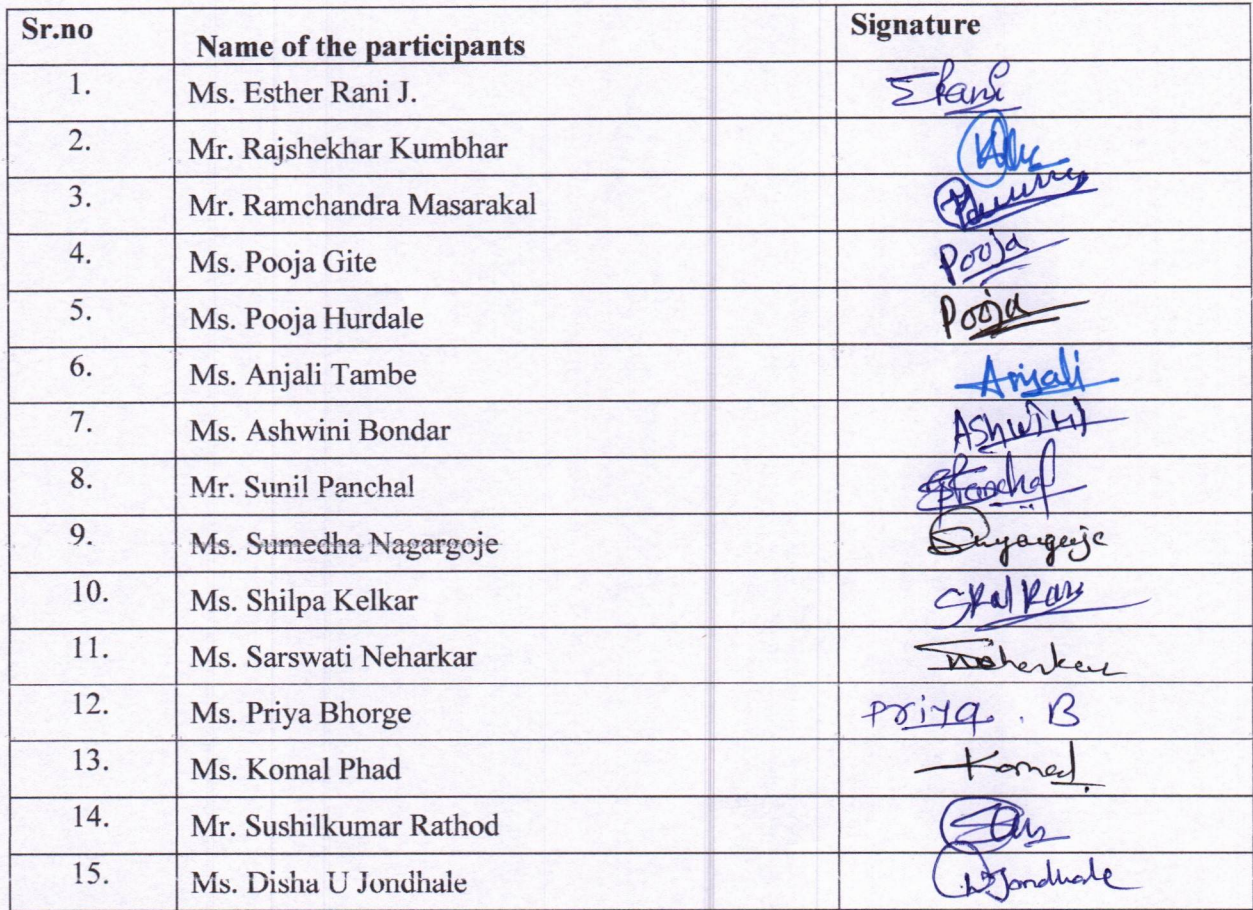 Sr.no Name of the participants Signature
1. Ms. Esther Rani J. ERani
2. Mr. Rajshekhar Kumbhar
3. Mr. Ramchandra Masarakal
4. Ms. Pooja Gite Pooja
5. Ms. Pooja Hurdale Pooja
6. Ms. Anjali Tambe Anjali
7. Ms. Ashwini Bondar ASHWINI
8. Mr. Sunil Panchal SPanchal
9. Ms. Sumedha Nagargoje
10. Ms. Shilpa Kelkar
11. Ms. Sarswati Neharkar
12. Ms. Priya Bhorge Priya . B
13. Ms. Komal Phad Komal
14. Mr. Sushilkumar Rathod
15. Ms. Disha U Jondhale DJondhale